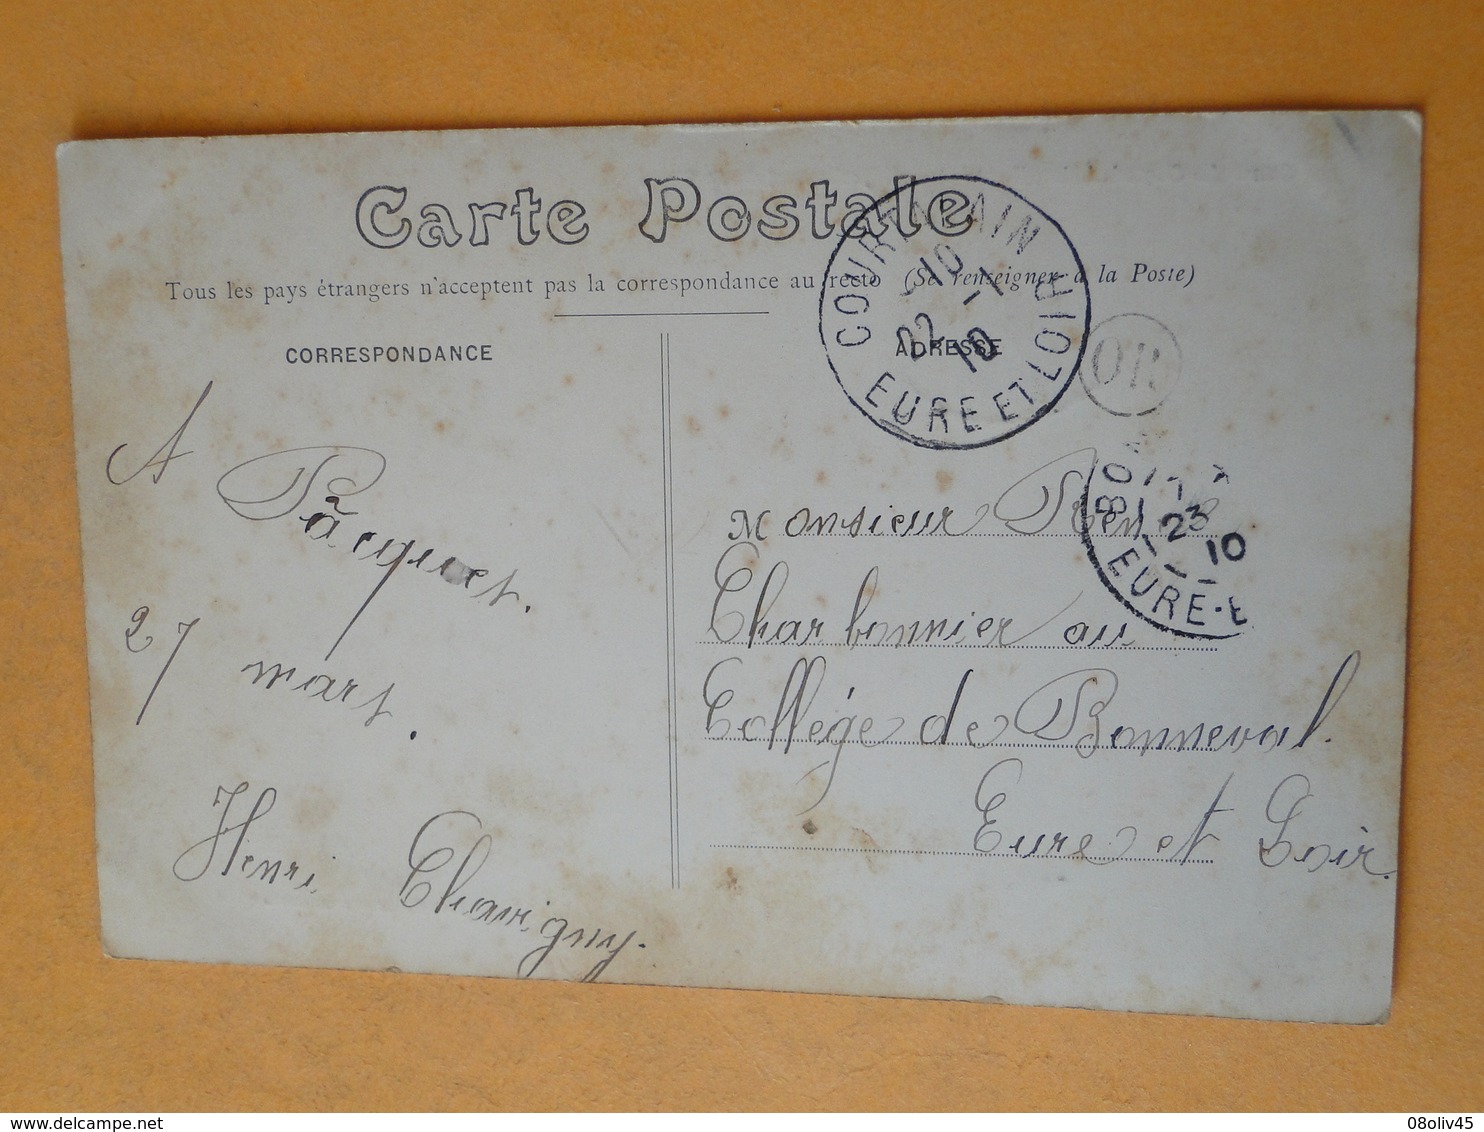 Carte Postale
Tous les pays étrangers n'acceptent pas la correspondance au recto (Se renseigner à la Poste)
CORRESPONDANCE
ADRESSE
COURTALAIN
10 -1
22 10
EURE ET LOIR
OR
BON
23
10
EURE-E
A
Pâcquet.
27
mars.
Henri Chavigny.
Monsieur René
Charbonnier au
Collège de Bonneval.
Eure et Loir.
delcampe.net
08oliv45